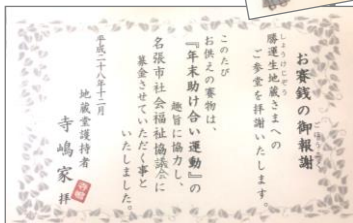 お賽銭の御報謝
勝運生地蔵さまへの
ご参堂を拝謝いたします。
このたび
お供えの賽物は、
『年末助け合い運動』の
趣旨に協力し、
名張市社会福祉協議会に
募金させていただく事と
いたしました。
平成二十八年十二月
地蔵堂護持者
寺嶋家 拝